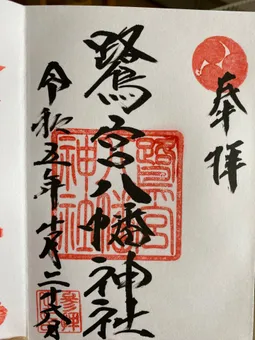 奉拝
鷺宮八幡神社
鷺宮
八幡
神社
令和五年
二十六日